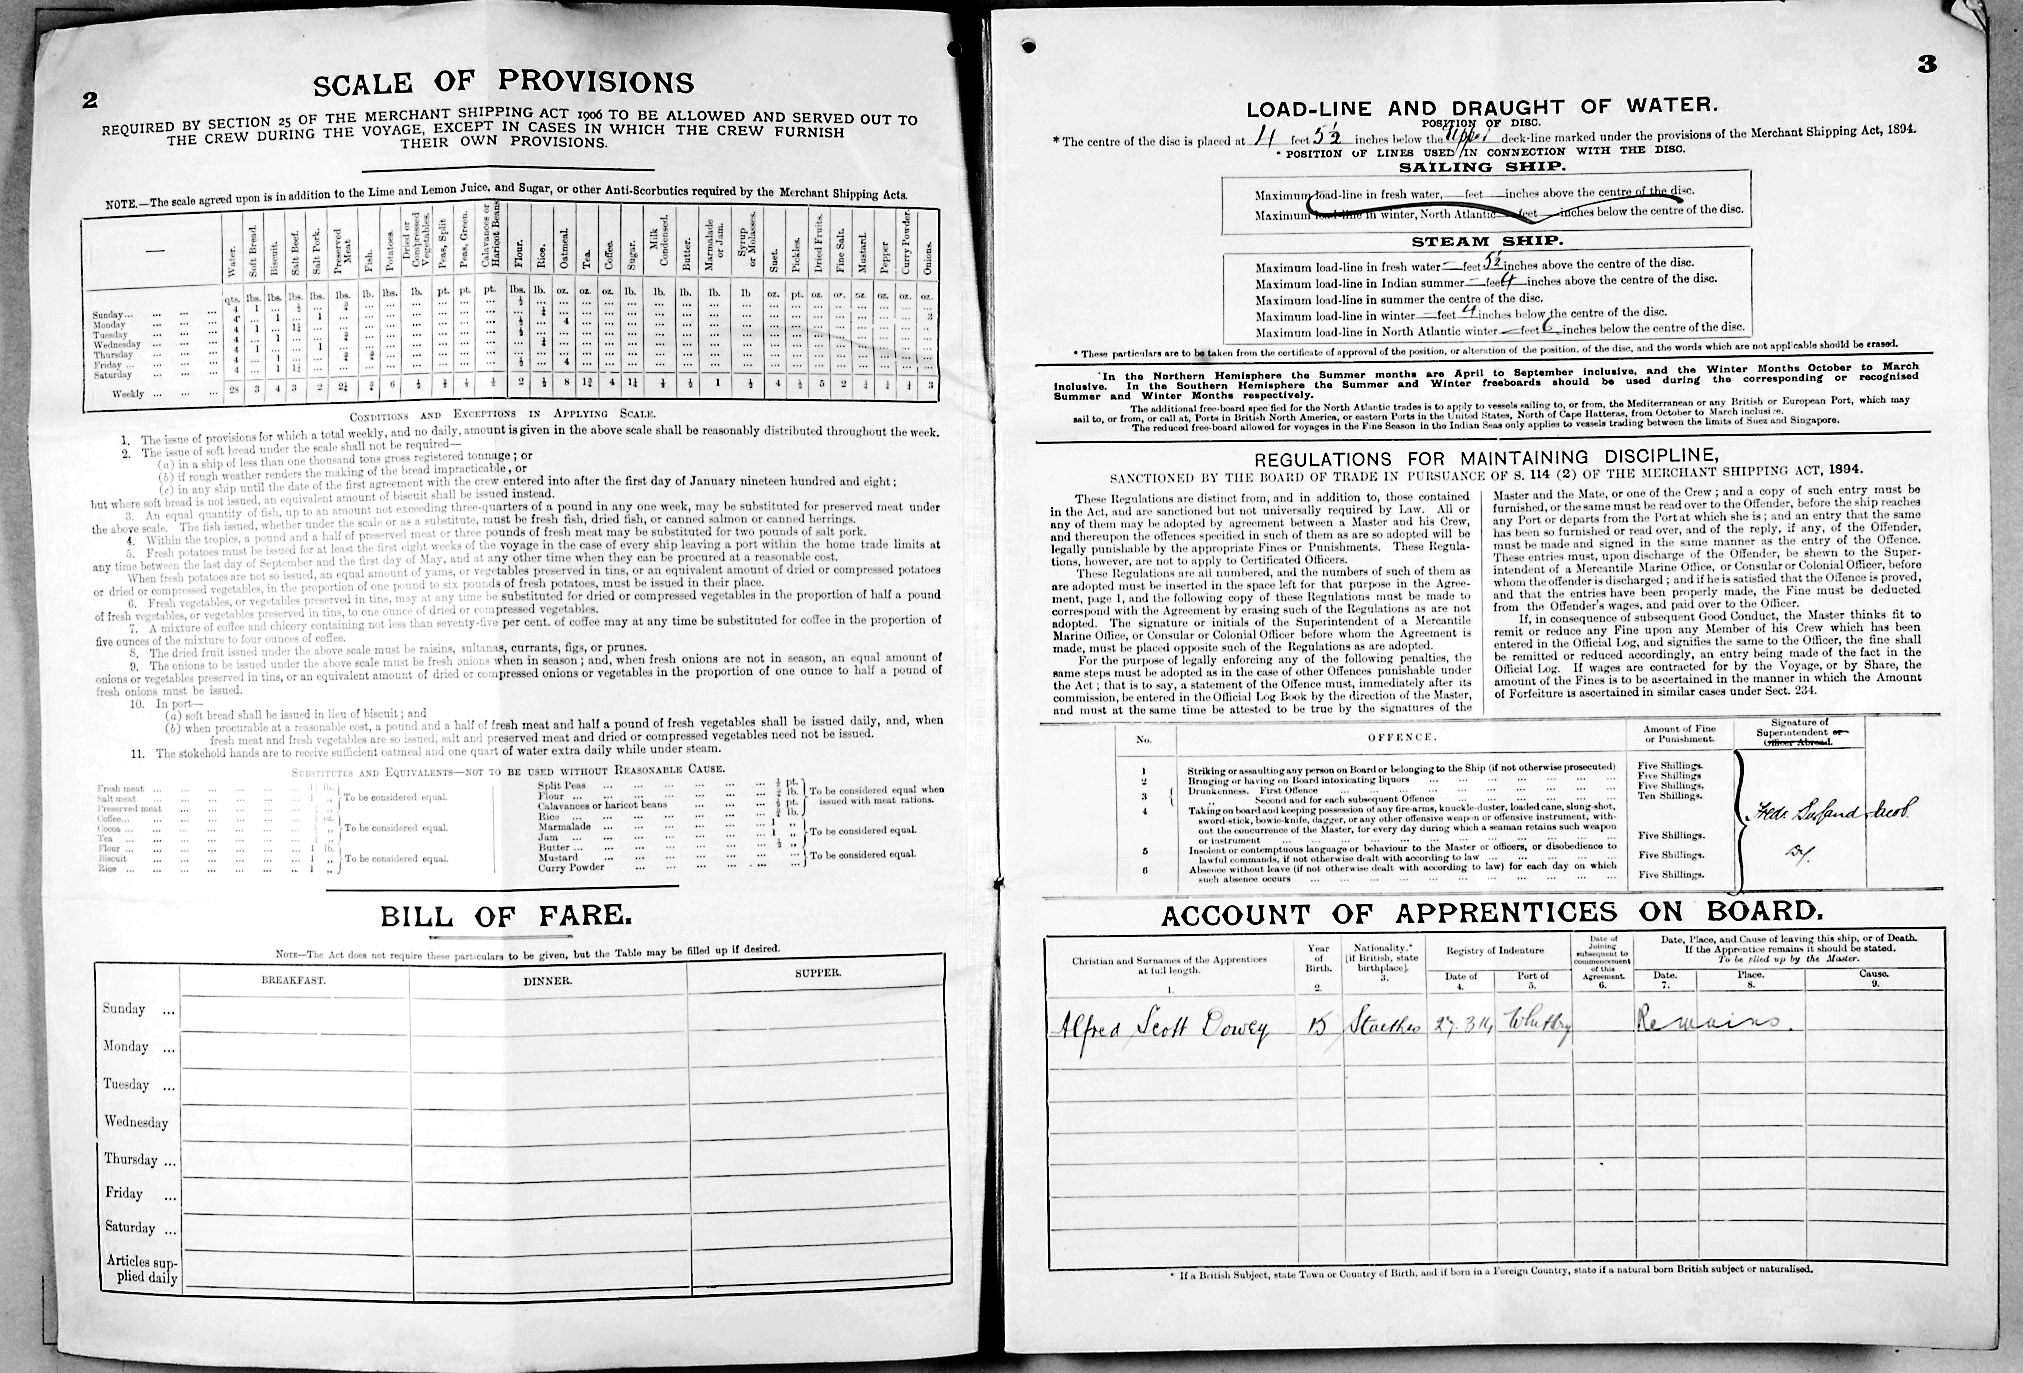 2
SCALE OF PROVISIONS
REQUIRED BY SECTION 25 OF THE MERCHANT SHIPPING ACT 1906 TO BE ALLOWED AND SERVED OUT TO
THE CREW DURING THE VOYAGE, EXCEPT IN CASES IN WHICH THE CREW FURNISH
THEIR OWN PROVISIONS.
NOTE.—The scale agreed upon is in addition to the Lime and Lemon Juice, and Sugar, or other Anti-Scorbutics required by the Merchant Shipping Acts.
— Water. Soft Bread. Biscuit. Salt Beef. Salt Pork. Preserved Meat Fish. Potatoes. Dried or Compressed Vegetables. Peas, Split Peas, Green. Calavances or Haricot Beans Flour. Rice. Oatmeal. Tea. Coffee. Sugar. Milk Condensed. Butter. Marmalade or Jam. Syrup or Molasses. Suet. Pickles. Dried Fruits. Fine Salt. Mustard. Pepper Curry Powder. Onions.
qts. lbs. lbs. lbs. lbs. lbs. lb. lbs. lb. pt. pt. pt. lbs. lb. oz. oz. oz. lb. lb. lb. lb. lb oz. pt. oz. oz. oz. oz. oz. oz.
Sunday...
Monday
Tuesday
Wednesday
Thursday
Friday ...
Saturday
Weekly ... 28 3 4 3 2
CONDITIONS AND EXCEPTIONS IN APPLYING SCALE.
1. The issue of provisions for which a total weekly, and no daily, amount is given in the above scale shall be reasonably distributed throughout the week.
2. The issue of soft bread under the scale shall not be required—
(a) in a ship of less than one thousand tons gross registered tonnage; or
(b) if rough weather renders the making of the bread impracticable, or
(c) in any ship until the date of the first agreement with the crew entered into after the first day of January nineteen hundred and eight;
but where soft bread is not issued, an equivalent amount of biscuit shall be issued instead.
3. An equal quantity of fish, up to an amount not exceeding three-quarters of a pound in any one week, may be substituted for preserved meat under
the above scale. The fish issued, whether under the scale or as a substitute, must be fresh fish, dried fish, or canned salmon or canned herrings.
4. Within the tropics, a pound and a half of preserved meat or three pounds of fresh meat may be substituted for two pounds of salt pork.
5. Fresh potatoes must be issued for at least the first eight weeks of the voyage in the case of every ship leaving a port within the home trade limits at
any time between the last day of September and the first day of May, and at any other time when they can be procured at a reasonable cost.
When fresh potatoes are not so issued, an equal amount of yams, or vegetables preserved in tins, or an equivalent amount of dried or compressed potatoes
or dried or compressed vegetables, in the proportion of one pound to six pounds of fresh potatoes, must be issued in their place.
6. Fresh vegetables, or vegetables preserved in tins, may at any time be substituted for dried or compressed vegetables in the proportion of half a pound
of fresh vegetables, or vegetables preserved in tins, to one ounce of dried or compressed vegetables.
7. A mixture of coffee and chicory containing not less than seventy-five per cent. of coffee may at any time be substituted for coffee in the proportion of
five ounces of the mixture to four ounces of coffee.
8. The dried fruit issued under the above scale must be raisins, sultanas, currants, figs, or prunes.
9. The onions to be issued under the above scale must be fresh onions when in season; and, when fresh onions are not in season, an equal amount of
onions or vegetables preserved in tins, or an equivalent amount of dried or compressed onions or vegetables in the proportion of one ounce to half a pound of
fresh onions must be issued.
10. In port—
(a) soft bread shall be issued in lieu of biscuit; and
(b) when procurable at a reasonable cost, a pound and a half of fresh meat and half a pound of fresh vegetables shall be issued daily, and, when
fresh meat and fresh vegetables are so issued, salt and preserved meat and dried or compressed vegetables need not be issued.
11. The stokehold hands are to receive sufficient oatmeal and one quart of water extra daily while under steam.
SUBSTITUTES AND EQUIVALENTS—NOT TO BE USED WITHOUT REASONABLE CAUSE.
Fresh meat
Salt meat
Preserved meat
To be considered equal.
Coffee...
Cocoa ...
Tea
To be considered equal.
Flour ... 1 lb.
Biscuit 1 „
Rice ... 1 „
To be considered equal.
Split Peas
Flour ...
Calavances or haricot beans
Rice
To be considered equal when
issued with meat rations.
Marmalade 1 „
Jam 1 „
Butter ... ½ „
To be considered equal.
Mustard
Curry Powder
To be considered equal.
BILL OF FARE.
NOTE—The Act does not require these particulars to be given, but the Table may be filled up if desired.
BREAKFAST. DINNER. SUPPER.
Sunday ...
Monday ...
Tuesday ...
Wednesday
Thursday ...
Friday ...
Saturday ...
Articles sup-
plied daily
3
LOAD-LINE AND DRAUGHT OF WATER.
POSITION OF DISC.
* The centre of the disc is placed at 4 feet 5½ inches below the Upper deck-line marked under the provisions of the Merchant Shipping Act, 1894.
* POSITION OF LINES USED IN CONNECTION WITH THE DISC.
SAILING SHIP.
Maximum load-line in fresh water, feet inches above the centre of the disc.
Maximum load-line in winter, North Atlantic feet inches below the centre of the disc.
STEAM SHIP.
Maximum load-line in fresh water — feet 5½ inches above the centre of the disc.
Maximum load-line in Indian summer — feet 4 inches above the centre of the disc.
Maximum load-line in summer the centre of the disc.
Maximum load-line in winter — feet 4 inches below the centre of the disc.
Maximum load-line in North Atlantic winter — feet 6 inches below the centre of the disc.
* These particulars are to be taken from the certificate of approval of the position, or alteration of the position, of the disc, and the words which are not applicable should be erased.
In the Northern Hemisphere the Summer months are April to September inclusive, and the Winter Months October to March
inclusive. In the Southern Hemisphere the Summer and Winter freeboards should be used during the corresponding or recognised
Summer and Winter Months respectively.
The additional free-board specified for the North Atlantic trades is to apply to vessels sailing to, or from, the Mediterranean or any British or European Port, which may
sail to, or from, or call at, Ports in British North America, or eastern Ports in the United States, North of Cape Hatteras, from October to March inclusive.
The reduced free-board allowed for voyages in the Fine Season in the Indian Seas only applies to vessels trading between the limits of Suez and Singapore.
REGULATIONS FOR MAINTAINING DISCIPLINE,
SANCTIONED BY THE BOARD OF TRADE IN PURSUANCE OF S. 114 (2) OF THE MERCHANT SHIPPING ACT, 1894.
These Regulations are distinct from, and in addition to, those contained
in the Act, and are sanctioned but not universally required by Law. All or
any of them may be adopted by agreement between a Master and his Crew,
and thereupon the offences specified in such of them as are so adopted will be
legally punishable by the appropriate Fines or Punishments. These Regula-
tions, however, are not to apply to Certificated Officers.
These Regulations are all numbered, and the numbers of such of them as
are adopted must be inserted in the space left for that purpose in the Agree-
ment, page 1, and the following copy of these Regulations must be made to
correspond with the Agreement by erasing such of the Regulations as are not
adopted. The signature or initials of the Superintendent of a Mercantile
Marine Office, or Consular or Colonial Officer before whom the Agreement is
made, must be placed opposite such of the Regulations as are adopted.
For the purpose of legally enforcing any of the following penalties, the
same steps must be adopted as in the case of other Offences punishable under
the Act; that is to say, a statement of the Offence must, immediately after its
commission, be entered in the Official Log Book by the direction of the Master,
and must at the same time be attested to be true by the signatures of the
Master and the Mate, or one of the Crew; and a copy of such entry must be
furnished, or the same must be read over to the Offender, before the ship reaches
any Port or departs from the Port at which she is; and an entry that the same
has been so furnished or read over, and of the reply, if any, of the Offender,
must be made and signed in the same manner as the entry of the Offence.
These entries must, upon discharge of the Offender, be shewn to the Super-
intendent of a Mercantile Marine Office, or Consular or Colonial Officer, before
whom the offender is discharged; and if he is satisfied that the Offence is proved,
and that the entries have been properly made, the Fine must be deducted
from the Offender's wages, and paid over to the Officer.
If, in consequence of subsequent Good Conduct, the Master thinks fit to
remit or reduce any Fine upon any Member of his Crew which has been
entered in the Official Log, and signifies the same to the Officer, the fine shall
be remitted or reduced accordingly, an entry being made of the fact in the
Official Log. If wages are contracted for by the Voyage, or by Share, the
amount of the Fines is to be ascertained in the manner in which the Amount
of Forfeiture is ascertained in similar cases under Sect. 234.
No. OFFENCE. Amount of Fine or Punishment. Signature of Superintendent or Officer Abroad.
1 Striking or assaulting any person on Board or belonging to the Ship (if not otherwise prosecuted) Five Shillings.
2 Bringing or having on Board intoxicating liquors Five Shillings
3 Drunkenness. First Offence Five Shillings.
Second and for each subsequent Offence Ten Shillings.
4 Taking on board and keeping possession of any fire-arms, knuckle-duster, loaded cane, slung-shot,
sword-stick, bowie-knife, dagger, or any other offensive weapon or offensive instrument, with-
out the concurrence of the Master, for every day during which a seaman retains such weapon
or instrument Five Shillings.
5 Insolent or contemptuous language or behaviour to the Master or officers, or disobedience to
lawful commands, if not otherwise dealt with according to law Five Shillings.
6 Absence without leave (if not otherwise dealt with according to law) for each day on which
such absence occurs Five Shillings.
Jacob
ACCOUNT OF APPRENTICES ON BOARD.
Christian and Surnames of the Apprentices at full length. 1. Year of Birth. 2. Nationality.* [if British, state birthplace]. 3. Registry of Indenture Date of 4. Port of 5. Date of Joining subsequent to commencement of this Agreement. 6. Date, Place, and Cause of leaving this ship, or of Death.
If the Apprentice remains it should be stated.
To be filled up by the Master.
Date. 7. Place. 8. Cause. 9.
Alfred Scott Dowey 15 Staithes 27.3.14 Whitby Remains.
* If a British Subject, state Town or Country of Birth, and if born in a Foreign Country, state if a natural born British subject or naturalised.